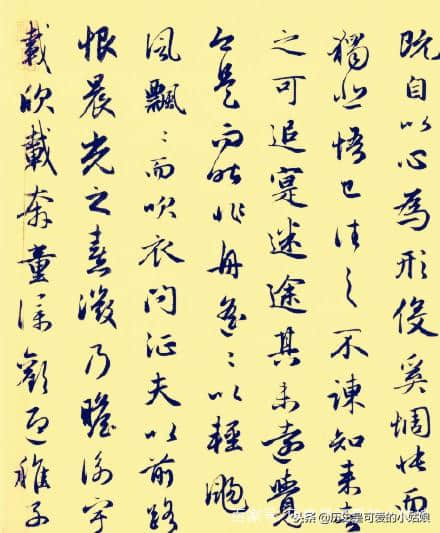 既自以心為形役奚惆悵而
獨悲悟已往之不諫知来者
之可追寔迷途其未遠覺
今是而昨非舟遙〻以輕颺
風飄〻而吹衣問征夫以前路
恨晨光之熹微乃瞻衡宇
載欣載奔童僕歡迎稚子
头条 @历史是可爱的小姑娘